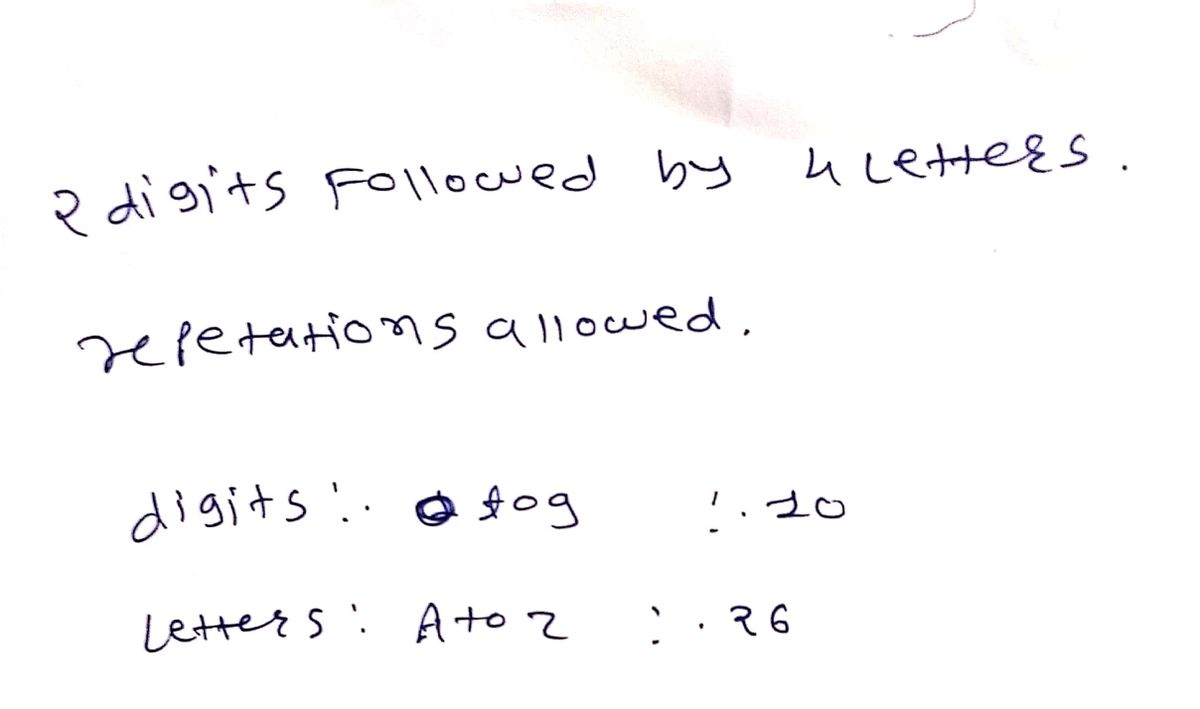 2 digits Followed by 4 Letters.
repetations allowed.
digits : 0 to 9 : 10
Letters : A to Z : 26